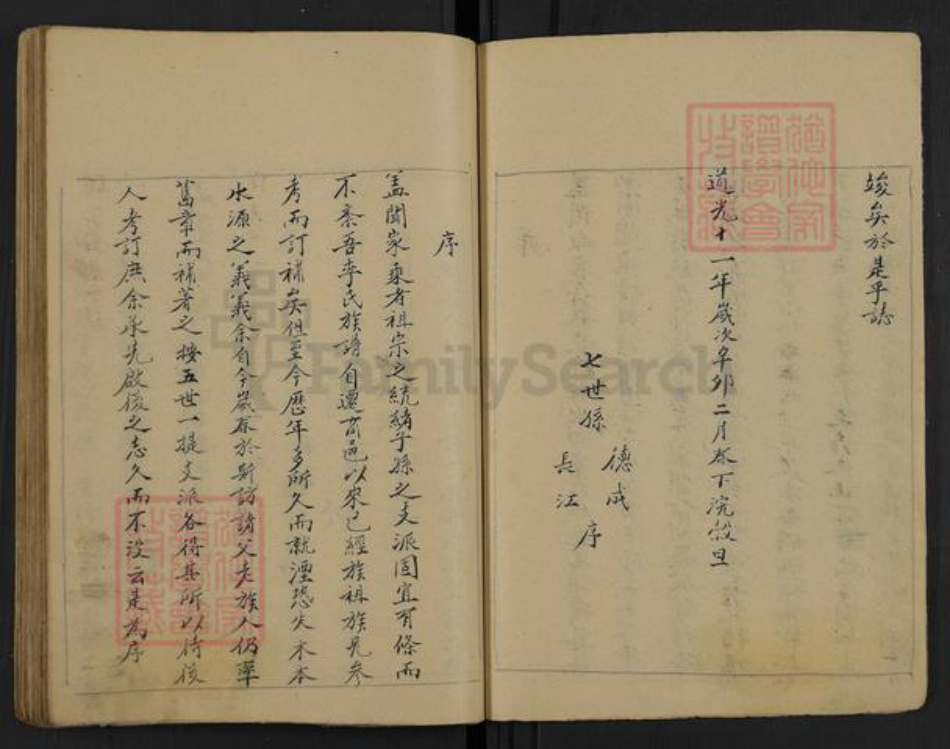 竣矣於是乎誌
道光十一年歲次辛卯二月春下浣穀旦
七世孫
德成
長江
序
序
盖聞家乘者祖宗之統緒子孫之支派固宜有條而
不紊吾李氏族譜自遷商邑以來已經族祖族兄參
考而訂補矣但至今歷年多所久而就湮恐失木本
水源之義義余自今歲春於斯訪諸父老族人仍率
舊章而補著之按五世一提支派各得其所以待後
人考訂庶余承先啟後之志久而不没云是為序
FamilySearch